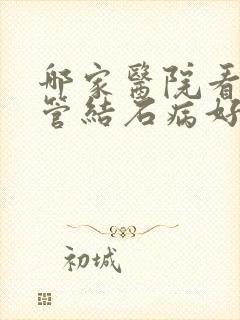 哪家醫院看
管結石病好
初城